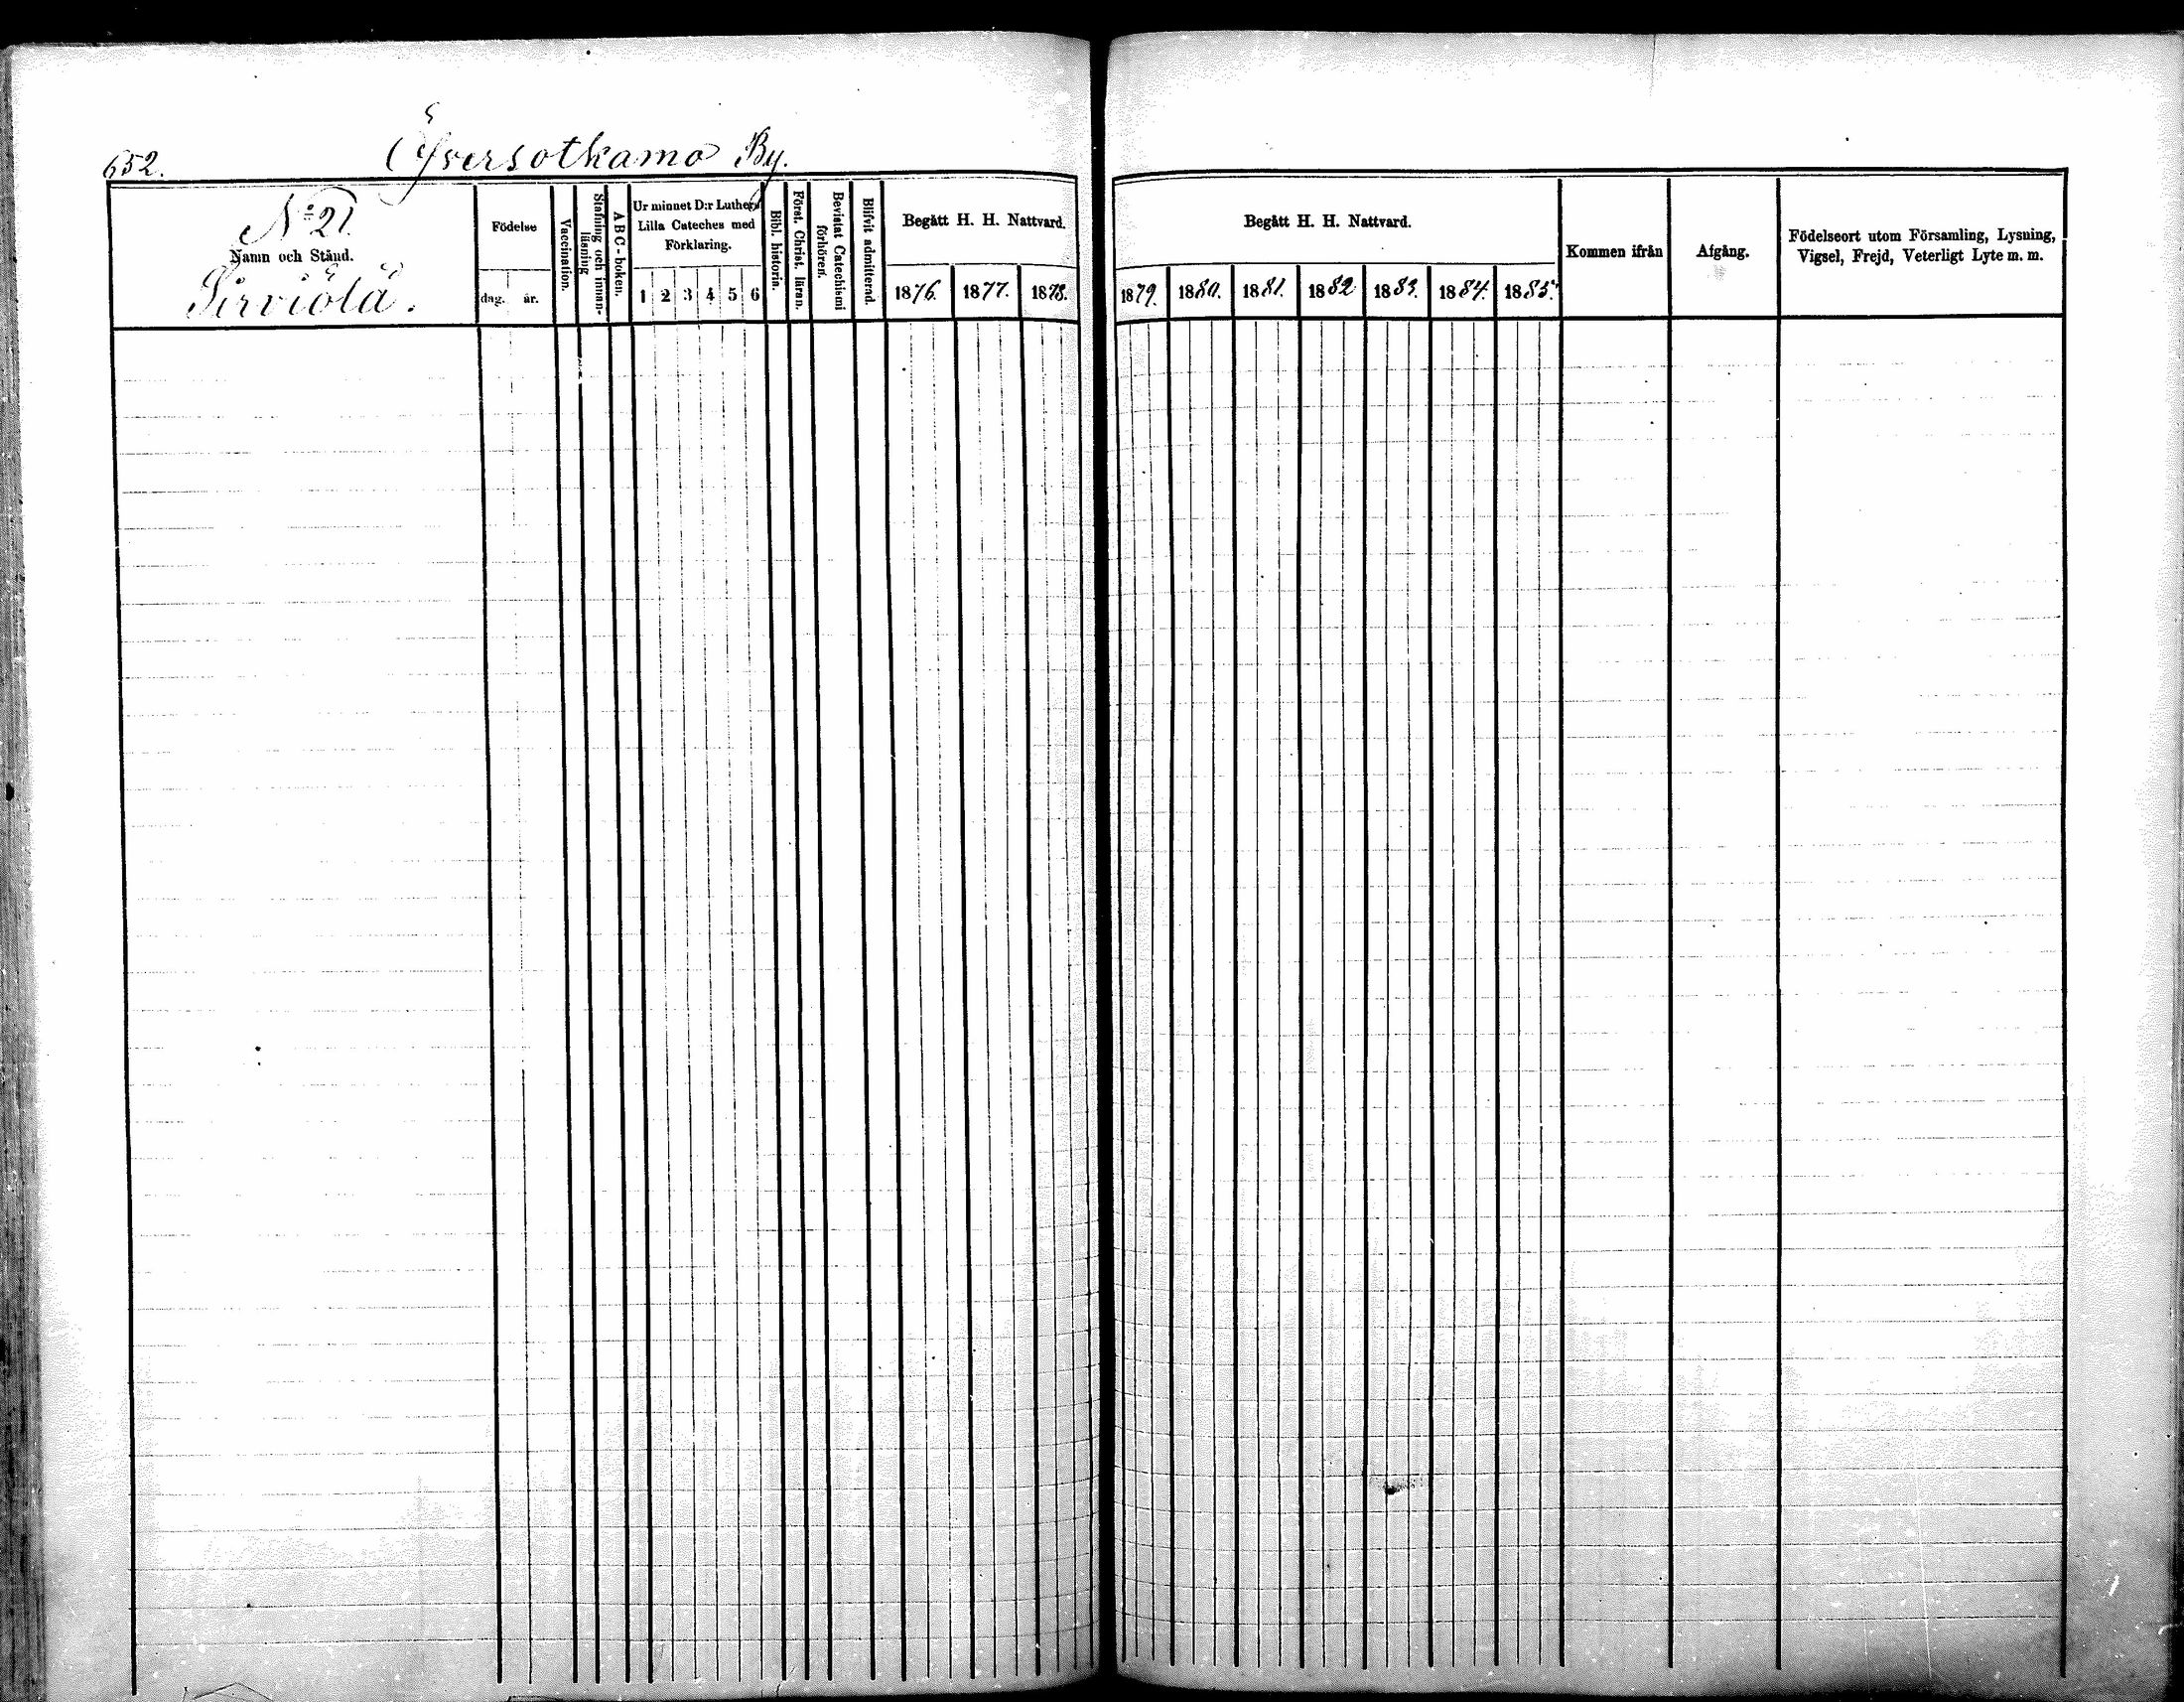 652.
Öfversotkamo By.
N:o 21.
Namn och Stånd.
Sirviölä.
Födelse
dag. år.
Vaccination.
Stafning och innan-
läsning
ABC-boken.
Ur minnet D:r Luthers
Lilla Cateches med
Förklaring.
1 2 3 4 5 6
Bibl. historia.
Först. Christ. läran.
Bevistat Catechismi
förhören.
Blifvit admitterad.
Begått H. H. Nattvard.
1876. 1877. 1878.
Begått H. H. Nattvard.
1879. 1880. 1881. 1882 1883. 1884. 1885.
Kommen ifrån
Afgång.
Födelseort utom Församling, Lysning,
Vigsel, Frejd, Veterligt Lyte m. m.